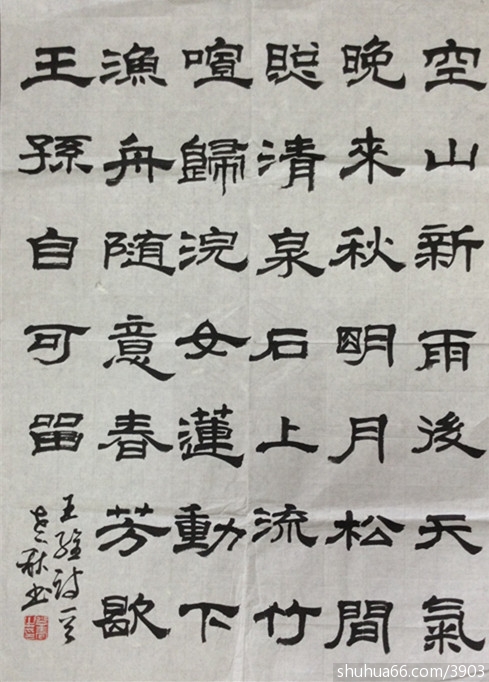 空山新雨後天氣
晚來秋明月松間
照清泉石上流竹
喧歸浣女蓮動下
漁舟随意春芳歇
王孫自可留
王維詩
秋书
shuhua66.com/3903